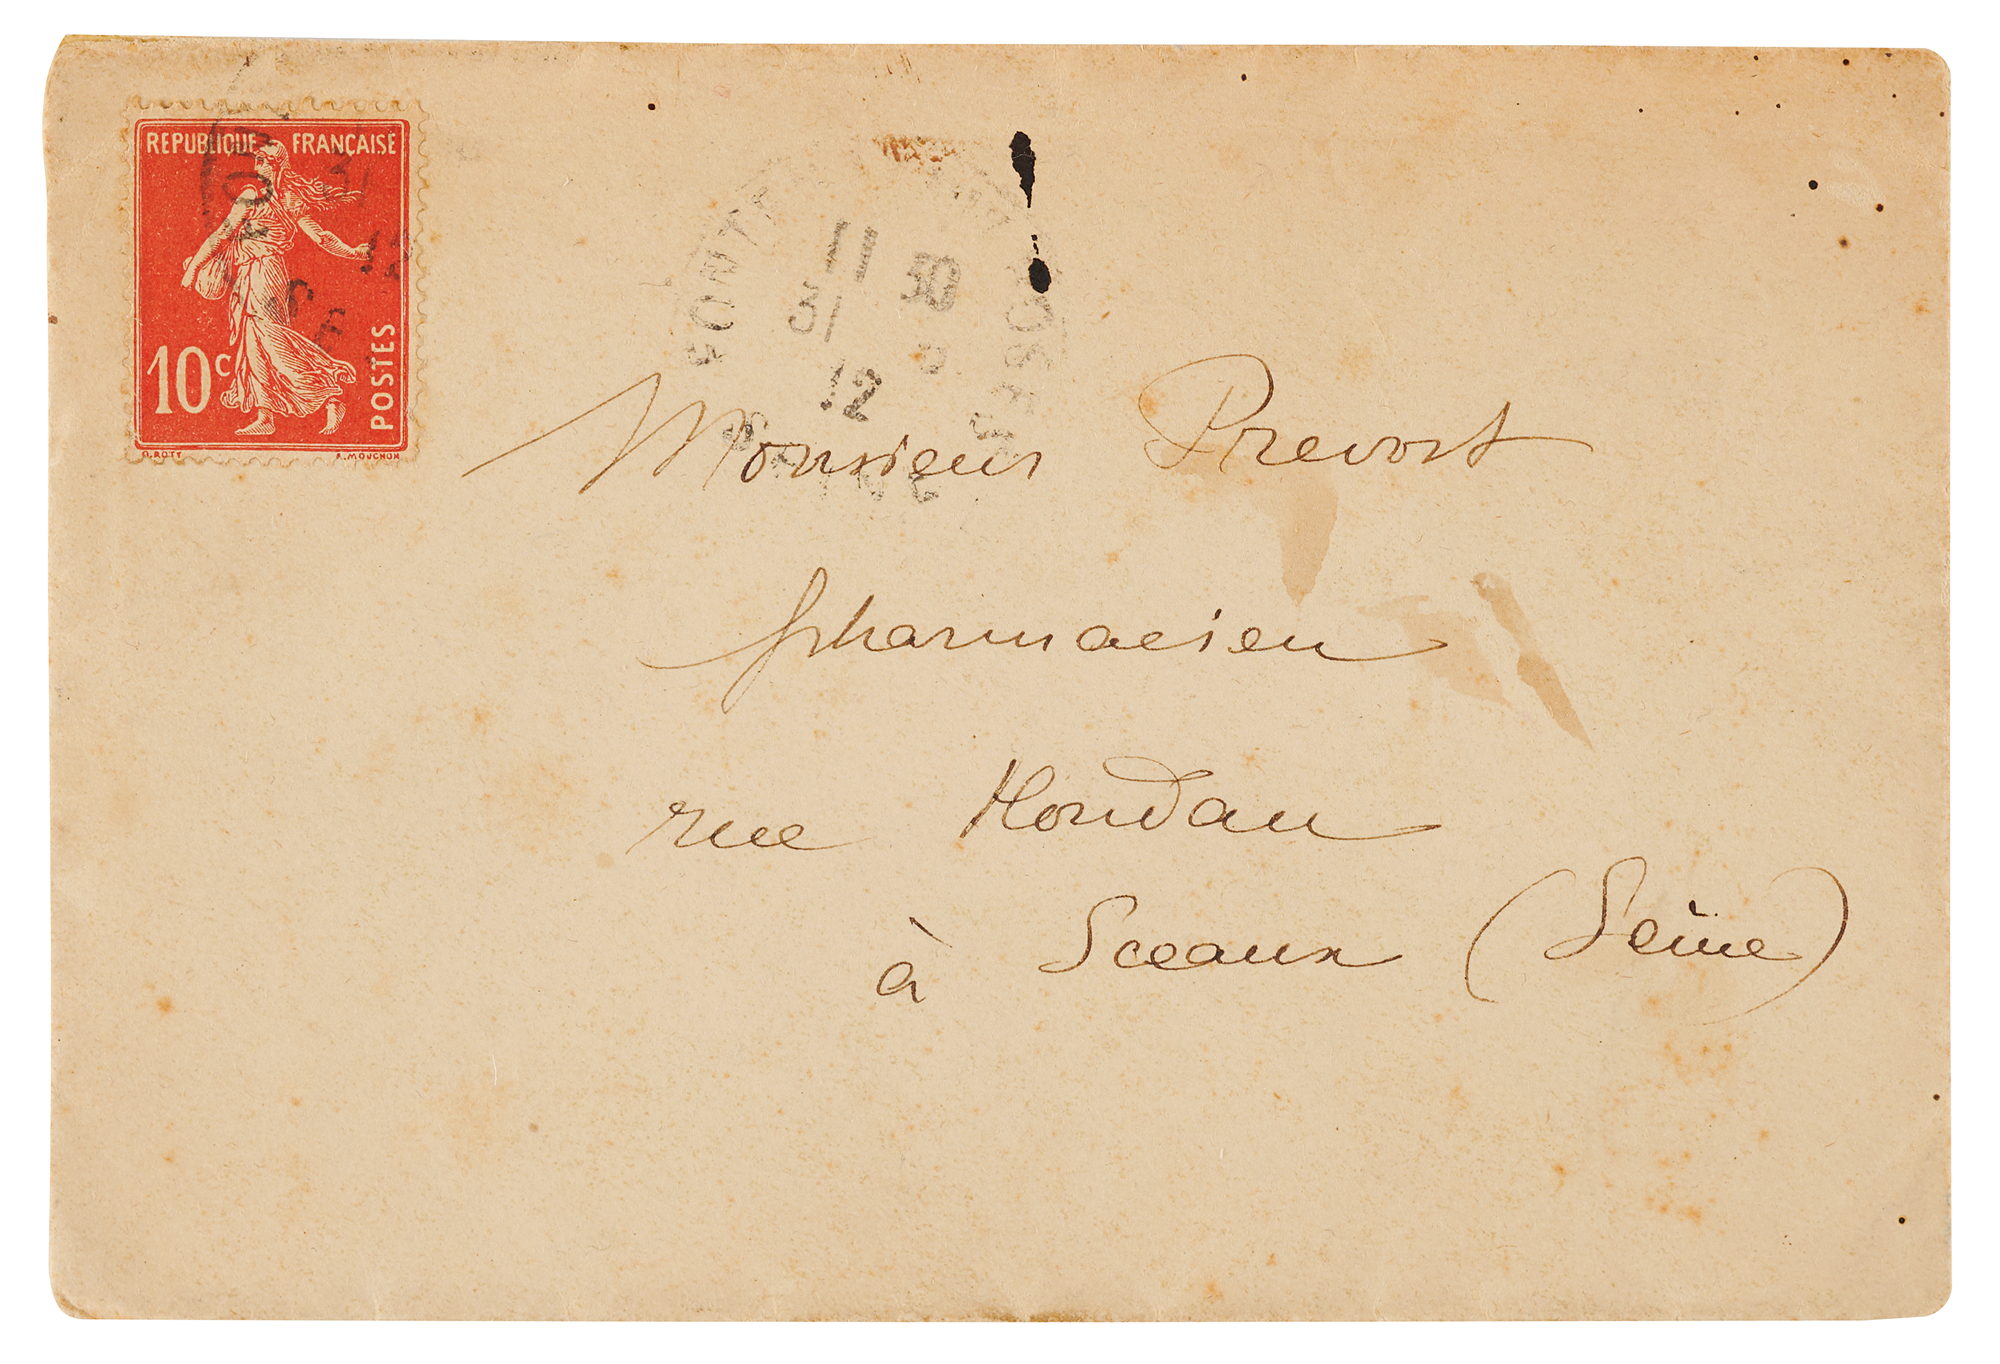 REPUBLIQUE FRANÇAISE
10c
POSTES
O. ROTY
A. MOUCHON
11 30
31
12
12
Monsieur Prevost
pharmacien
rue Houdan
à Sceaux (Seine)